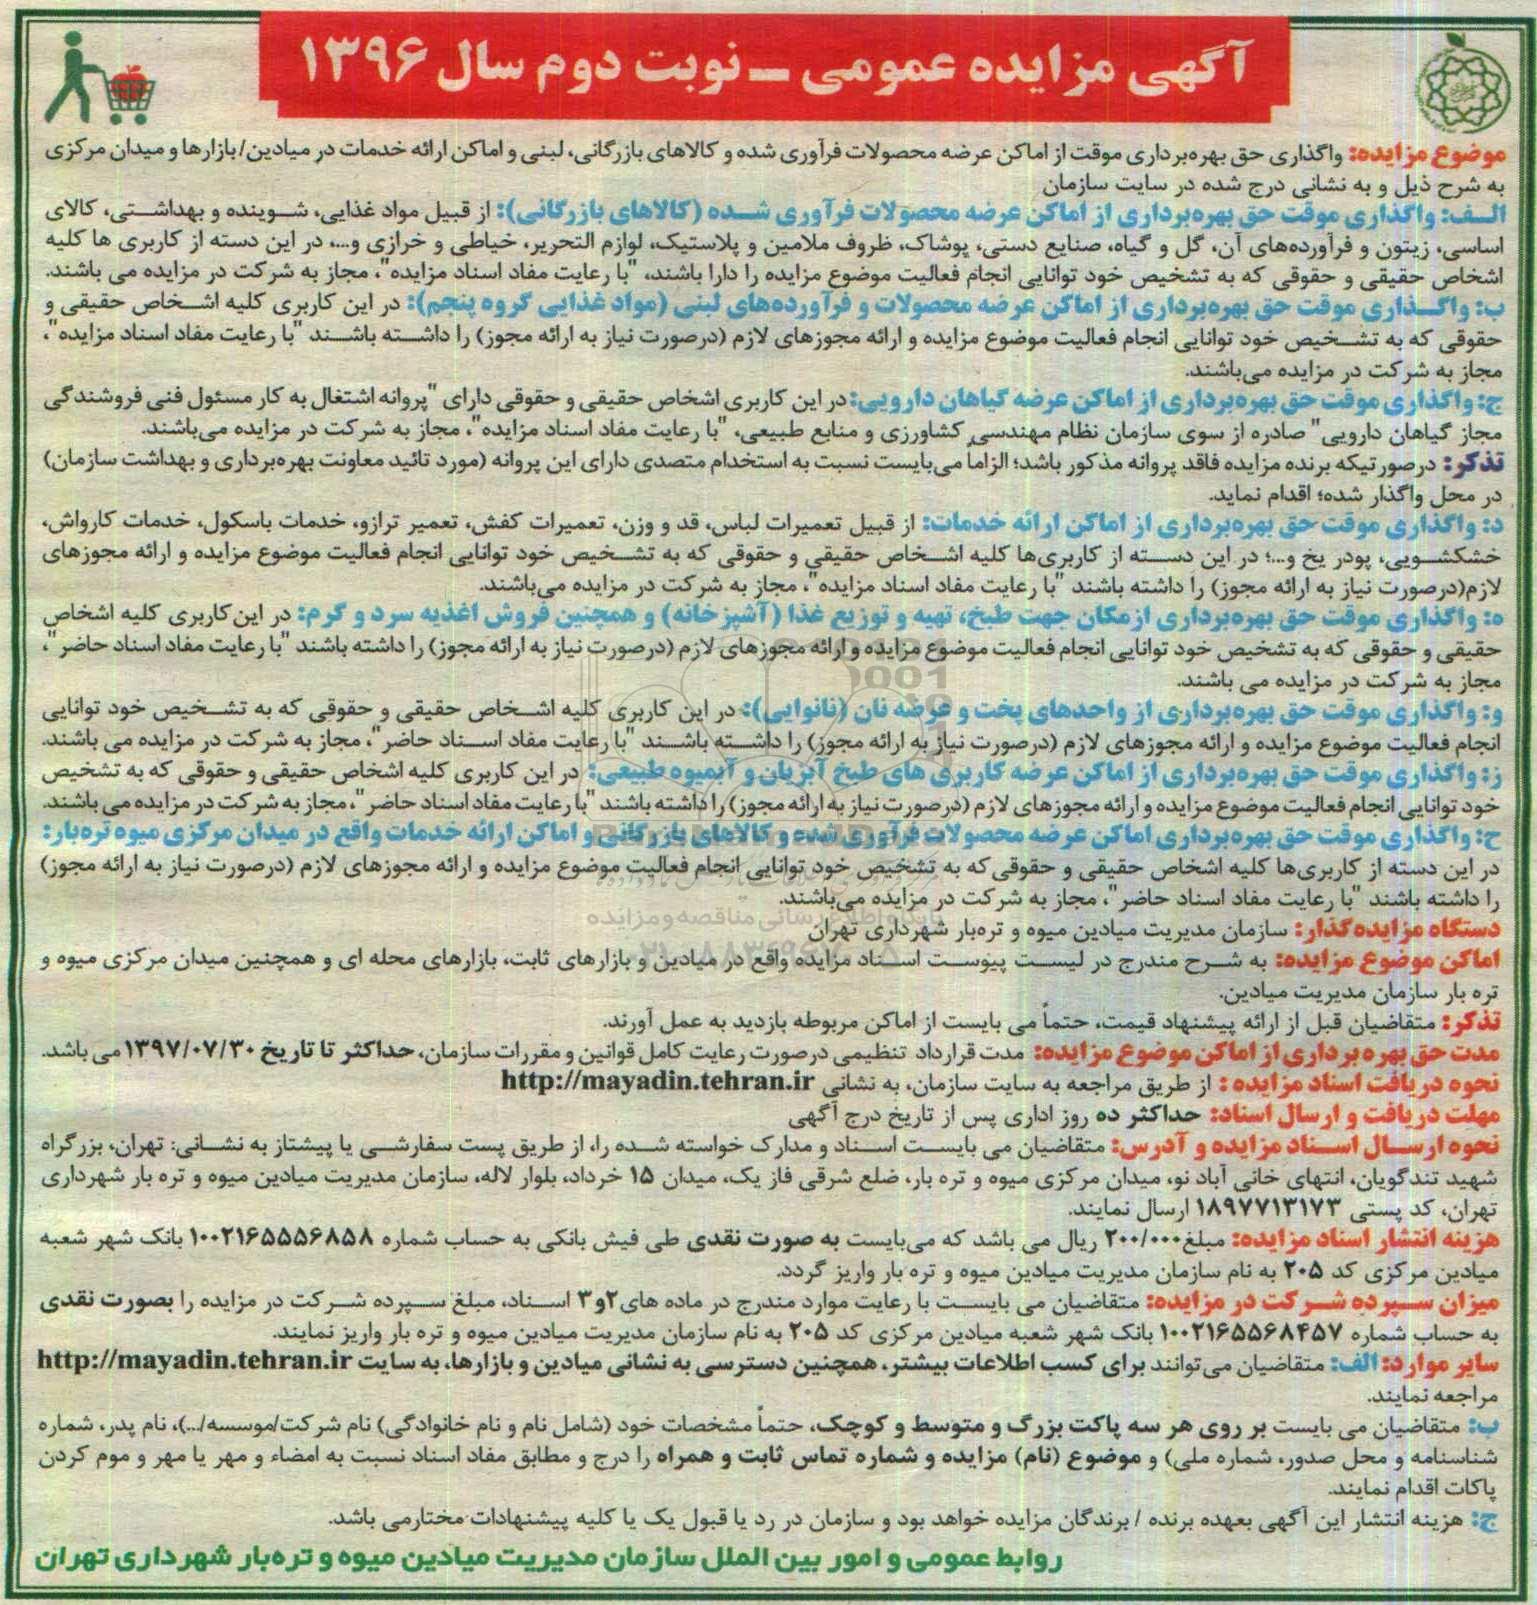 آگهی مزایده عمومی ــ نوبت دوم سال ۱۳۹۶
موضوع مزایده: واگذاری حق بهره‌برداری موقت از اماکن عرضه محصولات فرآوری شده و کالاهای بازرگانی، لبنی و اماکن ارائه خدمات در میادین/ بازارها و میدان مرکزی
به شرح ذیل و به نشانی درج شده در سایت سازمان
الــف: واگذاری موقت حق بهره‌برداری از اماکن عرضه محصولات فرآوری شده (کالاهای بازرگانی): از قبیل مواد غذایی، شوینده و بهداشتی، کالای
اساسی، زیتون و فرآورده‌های آن، گل و گیاه، صنایع دستی، پوشاک، ظروف ملامین و پلاستیک، لوازم التحریر، خیاطی و خرازی و...، در این دسته از کاربری ها کلیه
اشخاص حقیقی و حقوقی که به تشخیص خود توانایی انجام فعالیت موضوع مزایده را دارا باشند، "با رعایت مفاد اسناد مزایده"، مجاز به شرکت در مزایده می باشند.
ب: واگذاری موقت حق بهره‌برداری از اماکن عرضه محصولات و فرآورده‌های لبنی (مواد غذایی گروه پنجم): در این کاربری کلیه اشخاص حقیقی و
حقوقی که به تشخیص خود توانایی انجام فعالیت موضوع مزایده و ارائه مجوزهای لازم (درصورت نیاز به ارائه مجوز) را داشته باشند "با رعایت مفاد اسناد مزایده"،
مجاز به شرکت در مزایده می‌باشند.
ج: واگذاری موقت حق بهره‌برداری از اماکن عرضه گیاهان دارویی: در این کاربری اشخاص حقیقی و حقوقی دارای "پروانه اشتغال به کار مسئول فنی فروشندگی
مجاز گیاهان دارویی" صادره از سوی سازمان نظام مهندسی کشاورزی و منابع طبیعی، "با رعایت مفاد اسناد مزایده"، مجاز به شرکت در مزایده می‌باشند.
تذکر: درصورتیکه برنده مزایده فاقد پروانه مذکور باشد؛ الزاماً می‌بایست نسبت به استخدام متصدی دارای این پروانه (مورد تائید معاونت بهره‌برداری و بهداشت سازمان)
در محل واگذار شده؛ اقدام نماید.
د: واگذاری موقت حق بهره‌برداری از اماکن ارائه خدمات: از قبیل تعمیرات لباس، قد و وزن، تعمیرات کفش، تعمیر ترازو، خدمات باسکول، خدمات کارواش،
خشکشویی، پودر یخ و...؛ در این دسته از کاربری‌ها کلیه اشخاص حقیقی و حقوقی که به تشخیص خود توانایی انجام فعالیت موضوع مزایده و ارائه مجوزهای
لازم(درصورت نیاز به ارائه مجوز) را داشته باشند "با رعایت مفاد اسناد مزایده"، مجاز به شرکت در مزایده می‌باشند.
ه: واگذاری موقت حق بهره‌برداری ازمکان جهت طبخ، تهیه و توزیع غذا (آشپزخانه) و همچنین فروش اغذیه سرد و گرم: در این کاربری کلیه اشخاص
حقیقی و حقوقی که به تشخیص خود توانایی انجام فعالیت موضوع مزایده و ارائه مجوزهای لازم (درصورت نیاز به ارائه مجوز) را داشته باشند "با رعایت مفاد اسناد حاضر"،
مجاز به شرکت در مزایده می باشند.
و: واگذاری موقت حق بهره‌برداری از واحدهای پخت و عرضه نان (نانوایی): در این کاربری کلیه اشخاص حقیقی و حقوقی که به تشخیص خود توانایی
انجام فعالیت موضوع مزایده و ارائه مجوزهای لازم (درصورت نیاز به ارائه مجوز) را داشته باشند "با رعایت مفاد اسناد حاضر"، مجاز به شرکت در مزایده می باشند.
ز: واگذاری موقت حق بهره‌برداری از اماکن عرضه کاربری های طبخ آبزیان و آبمیوه طبیعی: در این کاربری کلیه اشخاص حقیقی و حقوقی که به تشخیص
خود توانایی انجام فعالیت موضوع مزایده و ارائه مجوزهای لازم (درصورت نیاز به ارائه مجوز) را داشته باشند "با رعایت مفاد اسناد حاضر"، مجاز به شرکت در مزایده می باشند.
ح: واگذاری موقت حق بهره‌برداری اماکن عرضه محصولات فرآوری شده و کالاهای بازرگانی و اماکن ارائه خدمات واقع در میدان مرکزی میوه تره‌بار:
در این دسته از کاربری‌ها کلیه اشخاص حقیقی و حقوقی‌که به تشخیص خود توانایی انجام فعالیت موضوع مزایده و ارائه مجوزهای لازم (درصورت نیاز به ارائه مجوز)
را داشته باشند "با رعایت مفاد اسناد حاضر"، مجاز به شرکت در مزایده می‌باشند.
پایگاه اطلاع رسانی مناقصه و مزایده
دستگاه مزایده‌گذار: سازمان مدیریت میادین میوه و تره‌بار شهرداری تهران
اماکن موضوع مزایده: به شرح مندرج در لیست پیوست اسناد مزایده واقع در میادین و بازارهای ثابت، بازارهای محله ای و همچنین میدان مرکزی میوه و
تره بار سازمان مدیریت میادین.
تذکر: متقاضیان قبل از ارائه پیشنهاد قیمت، حتماً می بایست از اماکن مربوطه بازدید به عمل آورند.
مدت حق بهره برداری از اماکن موضوع مزایده: مدت قرارداد تنظیمی درصورت رعایت کامل قوانین و مقررات سازمان، حداکثر تا تاریخ ۱۳۹۷/۰۷/۳۰ می باشد.
نحوه دریافت اسناد مزایده : از طریق مراجعه به سایت سازمان، به نشانی http://mayadin.tehran.ir
مهلت دریافت و ارسال اسناد: حداکثر ده روز اداری پس از تاریخ درج آگهی
نحوه ارسال اسناد مزایده و آدرس: متقاضیان می بایست اسناد و مدارک خواسته شده را، از طریق پست سفارشی یا پیشتاز به نشانی: تهران، بزرگراه
شهید تندگویان، انتهای خانی آباد نو، میدان مرکزی میوه و تره بار، ضلع شرقی فاز یک، میدان ۱۵ خرداد، بلوار لاله، سازمان مدیریت میادین میوه و تره بار شهرداری
تهران، کد پستی ۱۸۹۷۷۱۳۱۷۳ ارسال نمایند.
هزینه انتشار اسناد مزایده: مبلغ ۲۰۰/۰۰۰ ریال می باشد که می‌بایست به صورت نقدی طی فیش بانکی به حساب شماره ۱۰۰۲۱۶۵۵۵۶۸۵۸ بانک شهر شعبه
میادین مرکزی کد ۲۰۵ به نام سازمان مدیریت میادین میوه و تره بار واریز گردد.
میزان سپرده شرکت در مزایده: متقاضیان می بایست با رعایت موارد مندرج در ماده های ۲و۳ اسناد، مبلغ سپرده شرکت در مزایده را بصورت نقدی
به حساب شماره ۱۰۰۲۱۶۵۵۶۸۴۵۷ بانک شهر شعبه میادین مرکزی کد ۲۰۵ به نام سازمان مدیریت میادین میوه و تره بار واریز نمایند.
سایر موارد: الف: متقاضیان می‌توانند برای کسب اطلاعات بیشتر، همچنین دسترسی به نشانی میادین و بازارها، به سایت http://mayadin.tehran.ir
مراجعه نمایند.
ب: متقاضیان می بایست بر روی هر سه پاکت بزرگ و متوسط و کوچک، حتماً مشخصات خود (شامل نام و نام خانوادگی) نام شرکت/موسسه/...)، نام پدر، شماره
شناسنامه و محل صدور، شماره ملی) و موضوع (نام) مزایده و شماره تماس ثابت و همراه را درج و مطابق مفاد اسناد نسبت به امضاء و مهر یا مهر و موم کردن
پاکات اقدام نمایند.
ج: هزینه انتشار این آگهی بعهده برنده / برندگان مزایده خواهد بود و سازمان در رد یا قبول یک یا کلیه پیشنهادات مختارمی باشد.
روابط عمومی و امور بین الملل سازمان مدیریت میادین میوه و تره‌بار شهرداری تهران